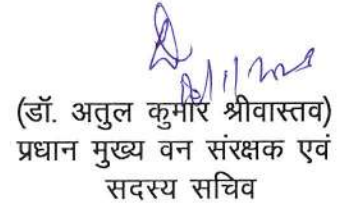 (डॉ. अतुल कुमार श्रीवास्तव)
प्रधान मुख्य वन संरक्षक एवं
सदस्य सचिव